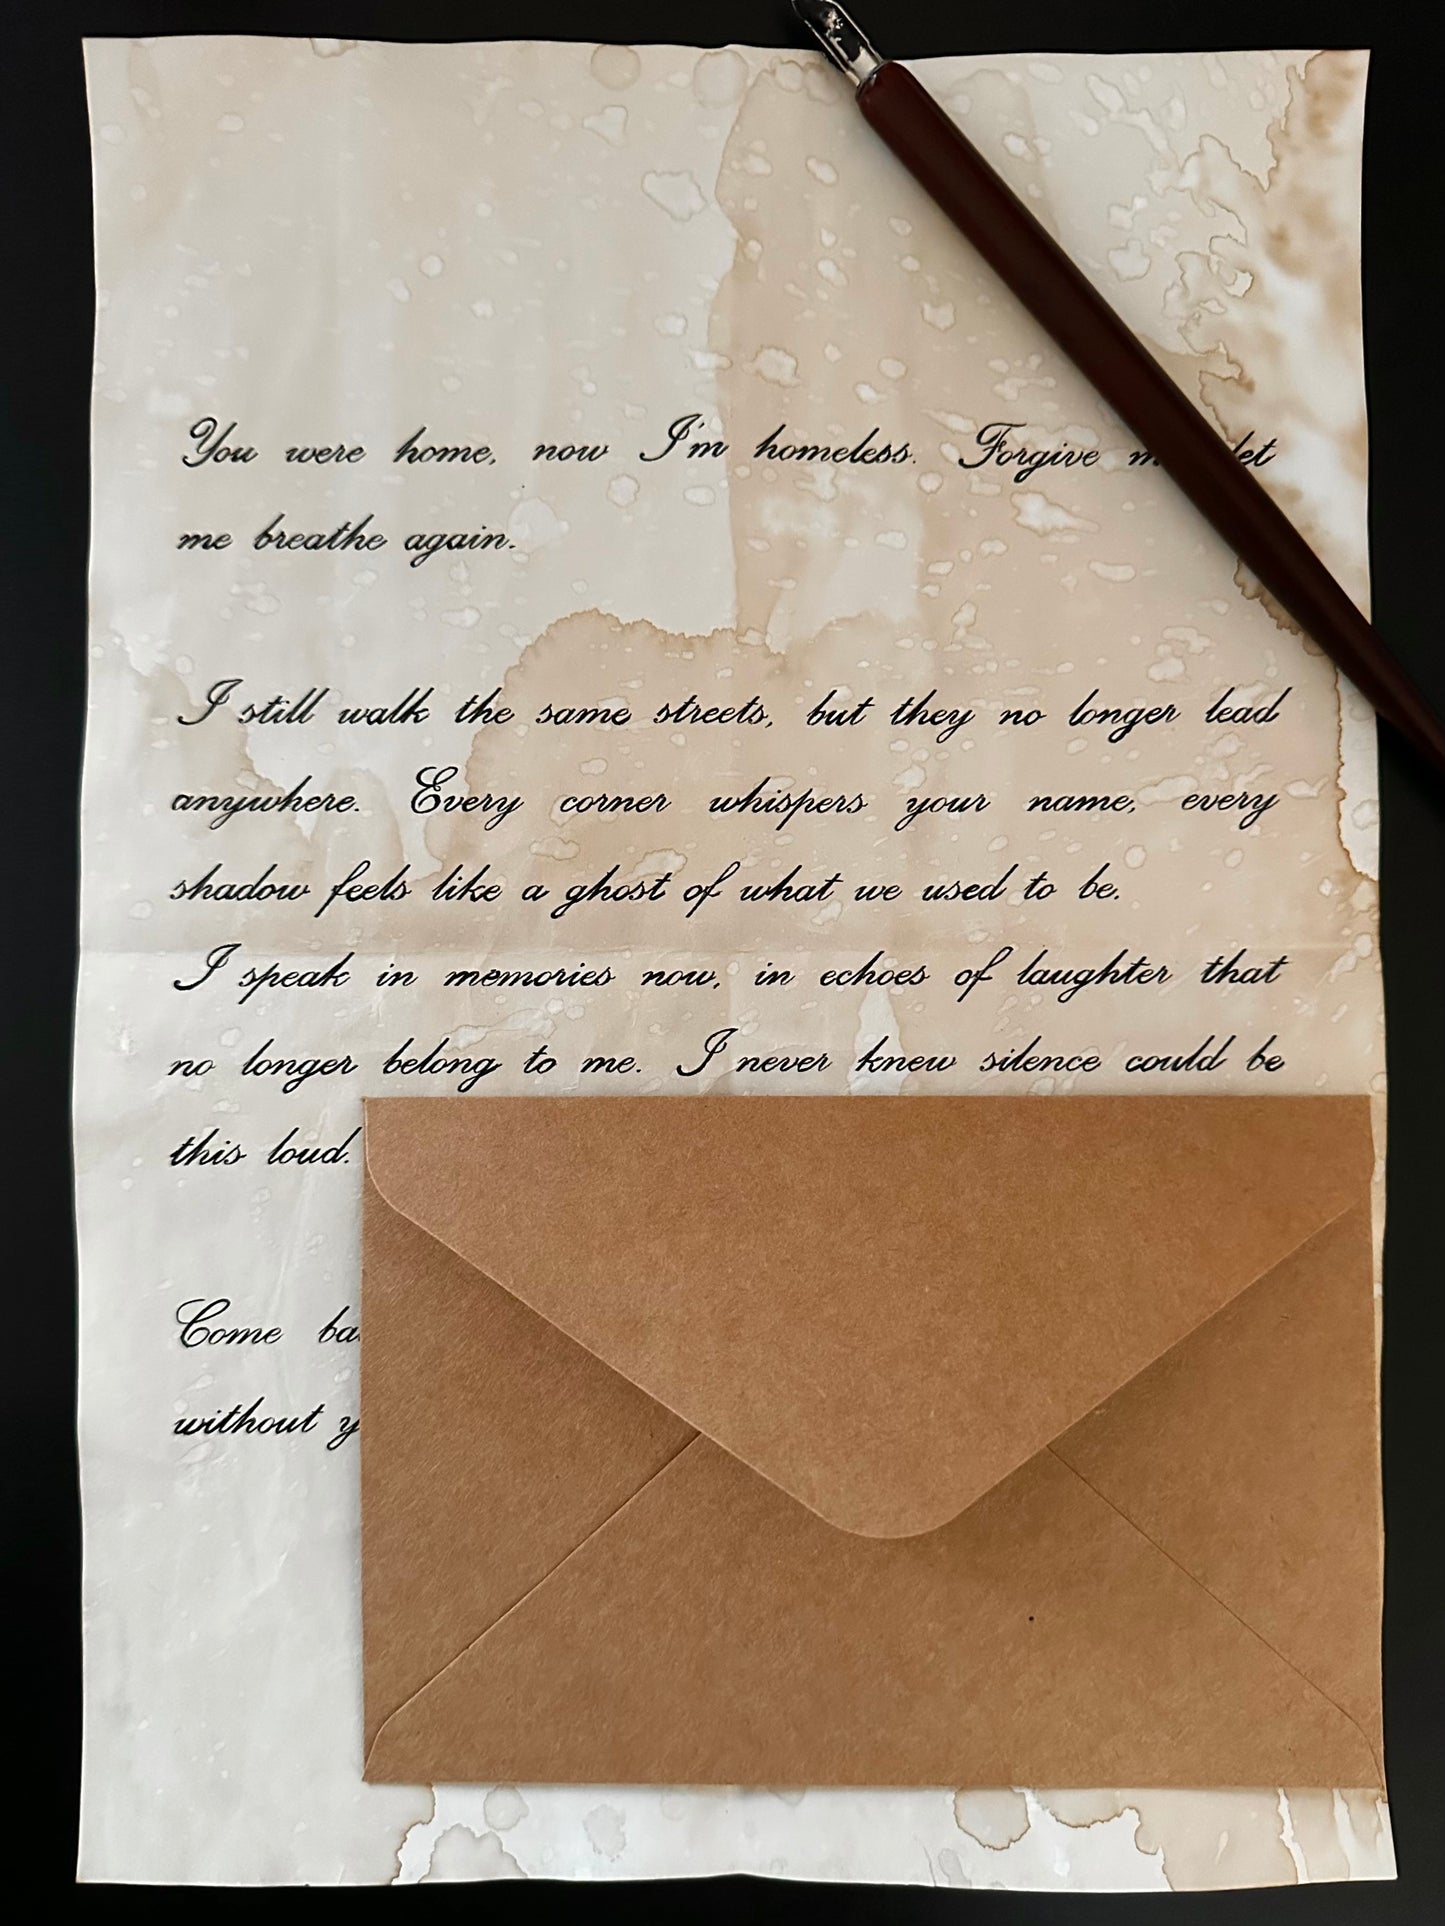 You were home, now I'm homeless. Forgive let
me breathe again.
I still walk the same streets, but they no longer lead
anywhere. Every corner whispers your name, every
shadow feels like a ghost of what we used to be.
I speak in memories now, in echoes of laughter that
no longer belong to me. I never knew silence could be
this loud.
Come
without